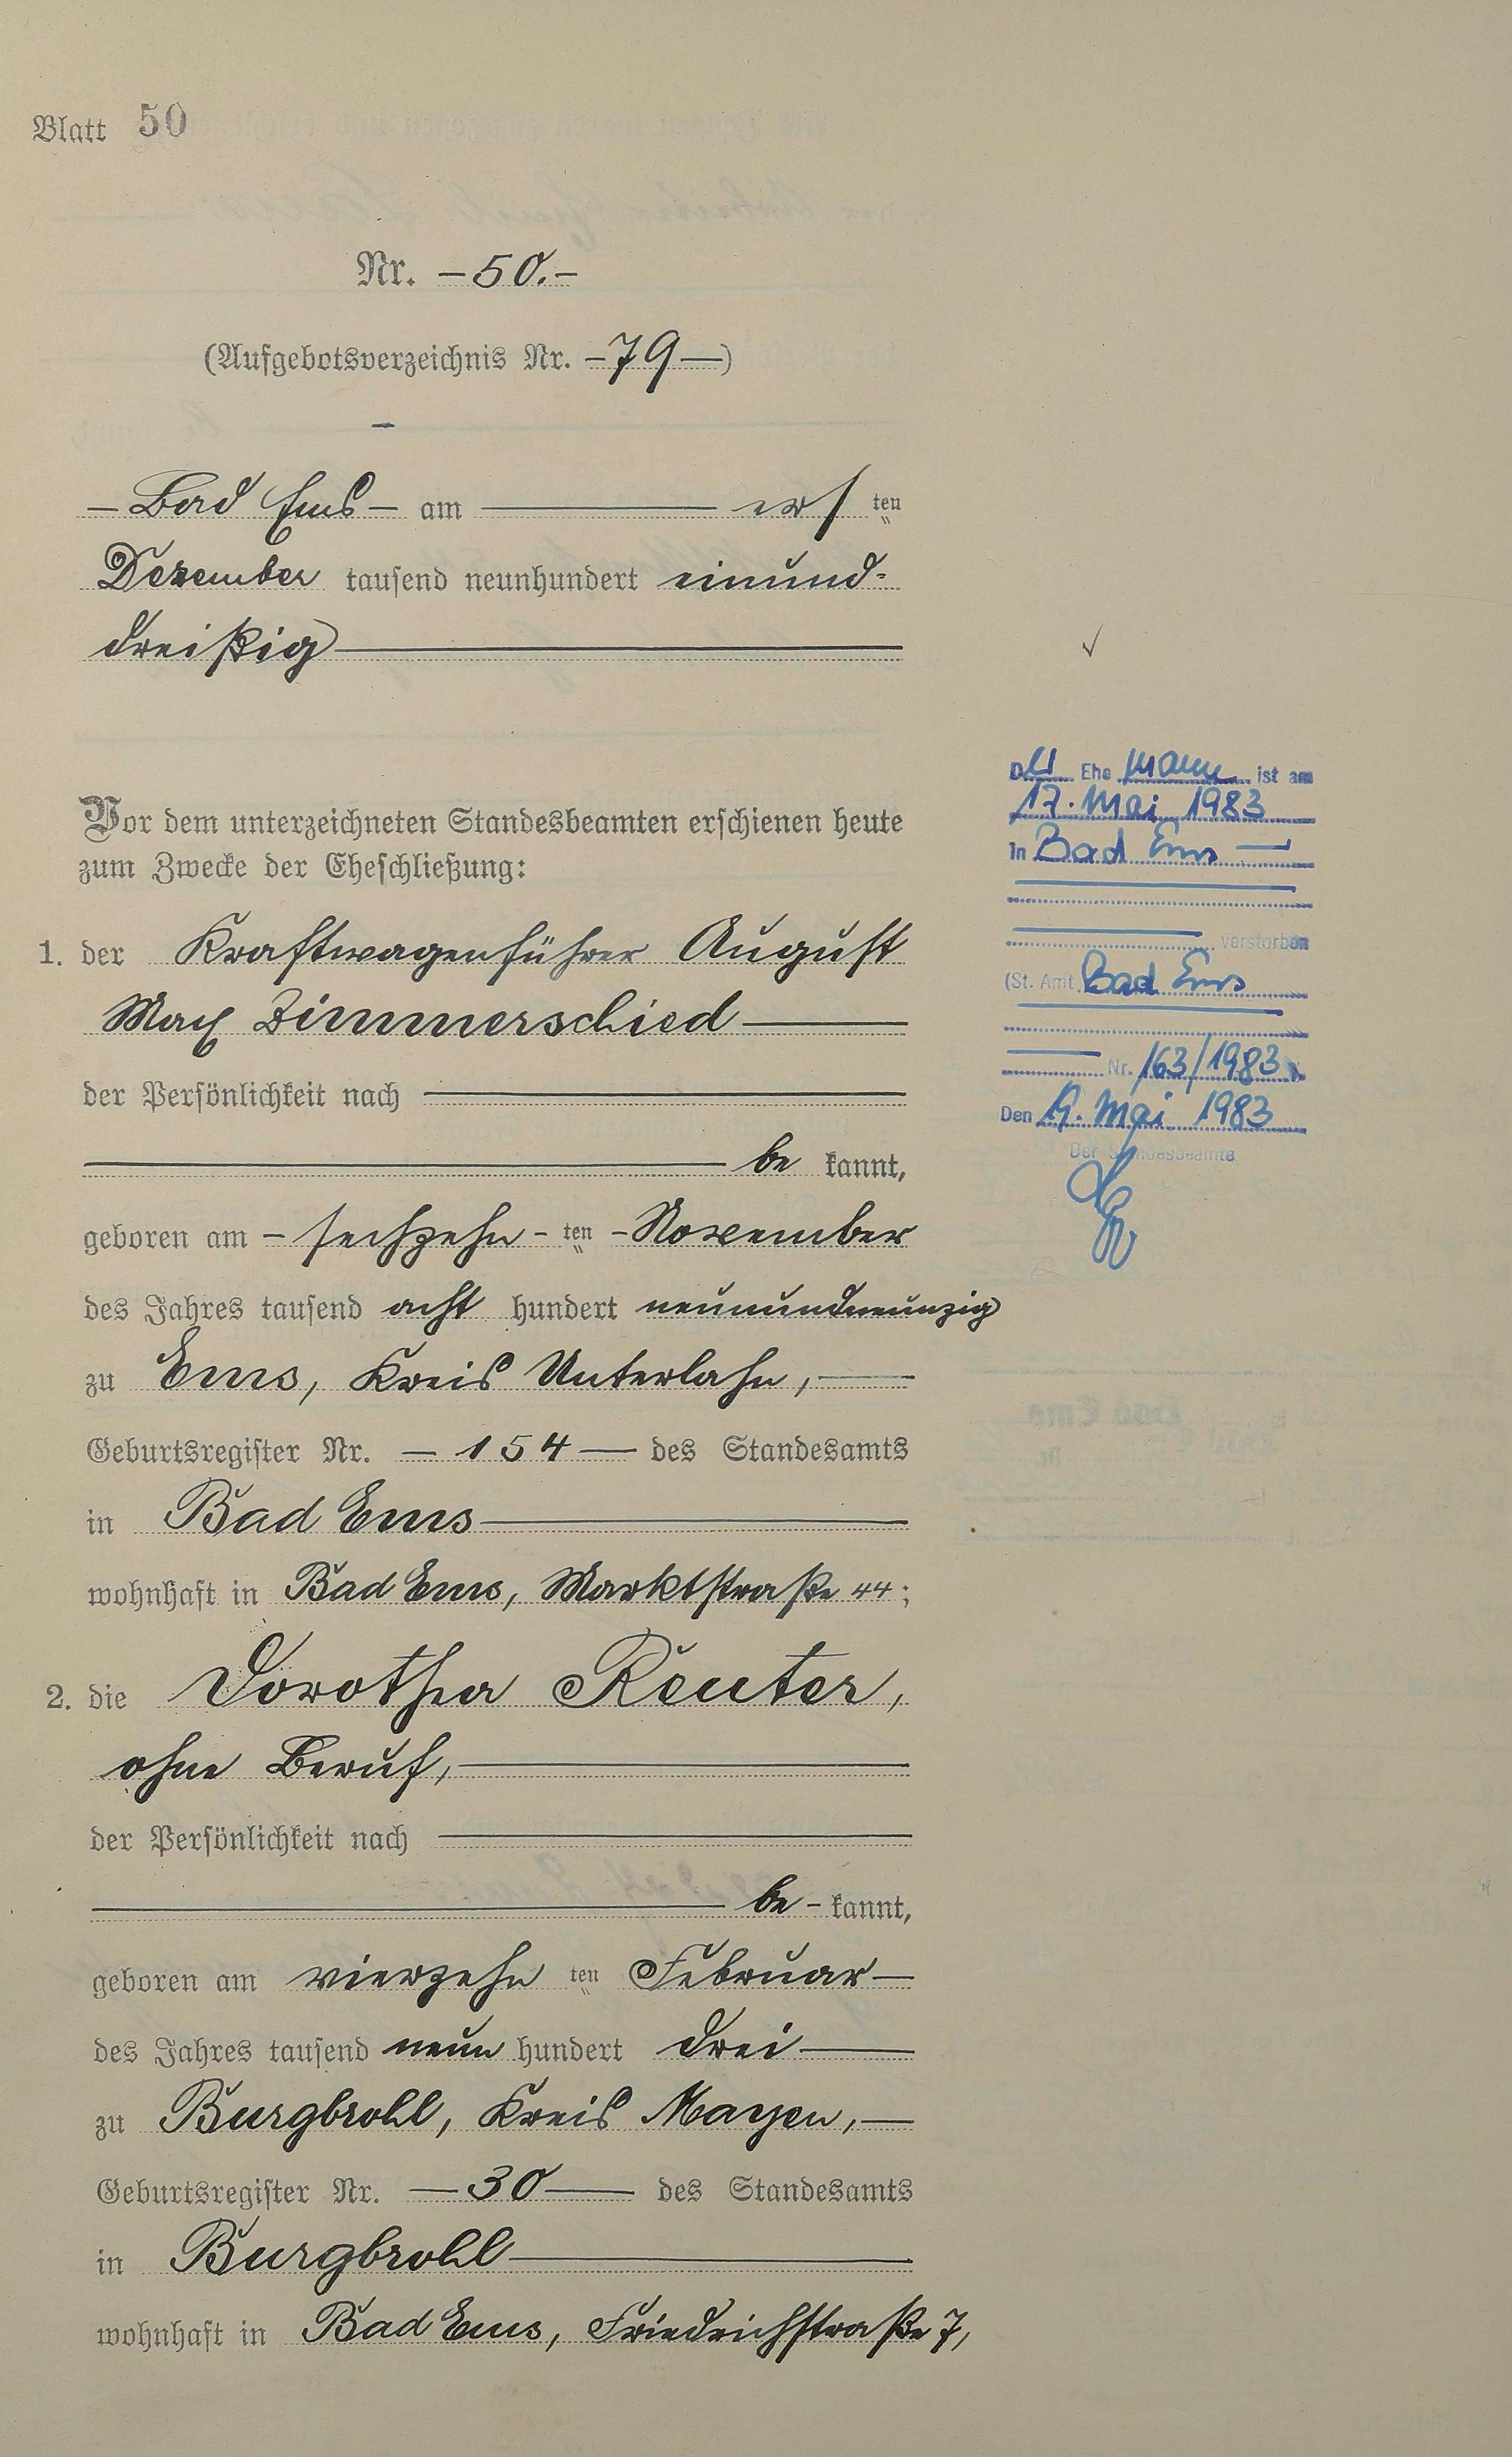 Blatt 50
Nr. – 50. –
(Aufgebotsverzeichnis Nr. – 79 –)
– Bad Ems – am — ersten
Dezember tausend neunhundert einund-
dreißig —
Vor dem unterzeichneten Standesbeamten erschienen heute
zum Zwecke der Eheschließung:
1. der Kraftwagenführer August
Max Zimmerschied —
der Persönlichkeit nach —
— be kannt,
geboren am – sechzehn – ten – November
des Jahres tausend acht hundert neunundneunzig
zu Ems, Kreis Unterlahn, —
Geburtsregister Nr. — 154 — des Standesamts
in Bad Ems —
wohnhaft in Bad Ems, Marktstraße 44;
2. die Dorothea Reuter,
ohne Beruf, —
der Persönlichkeit nach —
— be - kannt,
geboren am vierzehn ten Februar —
des Jahres tausend neun hundert drei —
zu Burgbrohl, Kreis Mayen, —
Geburtsregister Nr. — 30 — des Standesamts
in Burgbrohl —
wohnhaft in Bad Ems, Friedrichstraße 7,
Der Ehe mann ist am
17. Mai 1983
in Bad Ems —
verstorben
(St. Amt Bad Ems
Nr. 163/1983)
Den Mai 1983
Der Standesbeamte